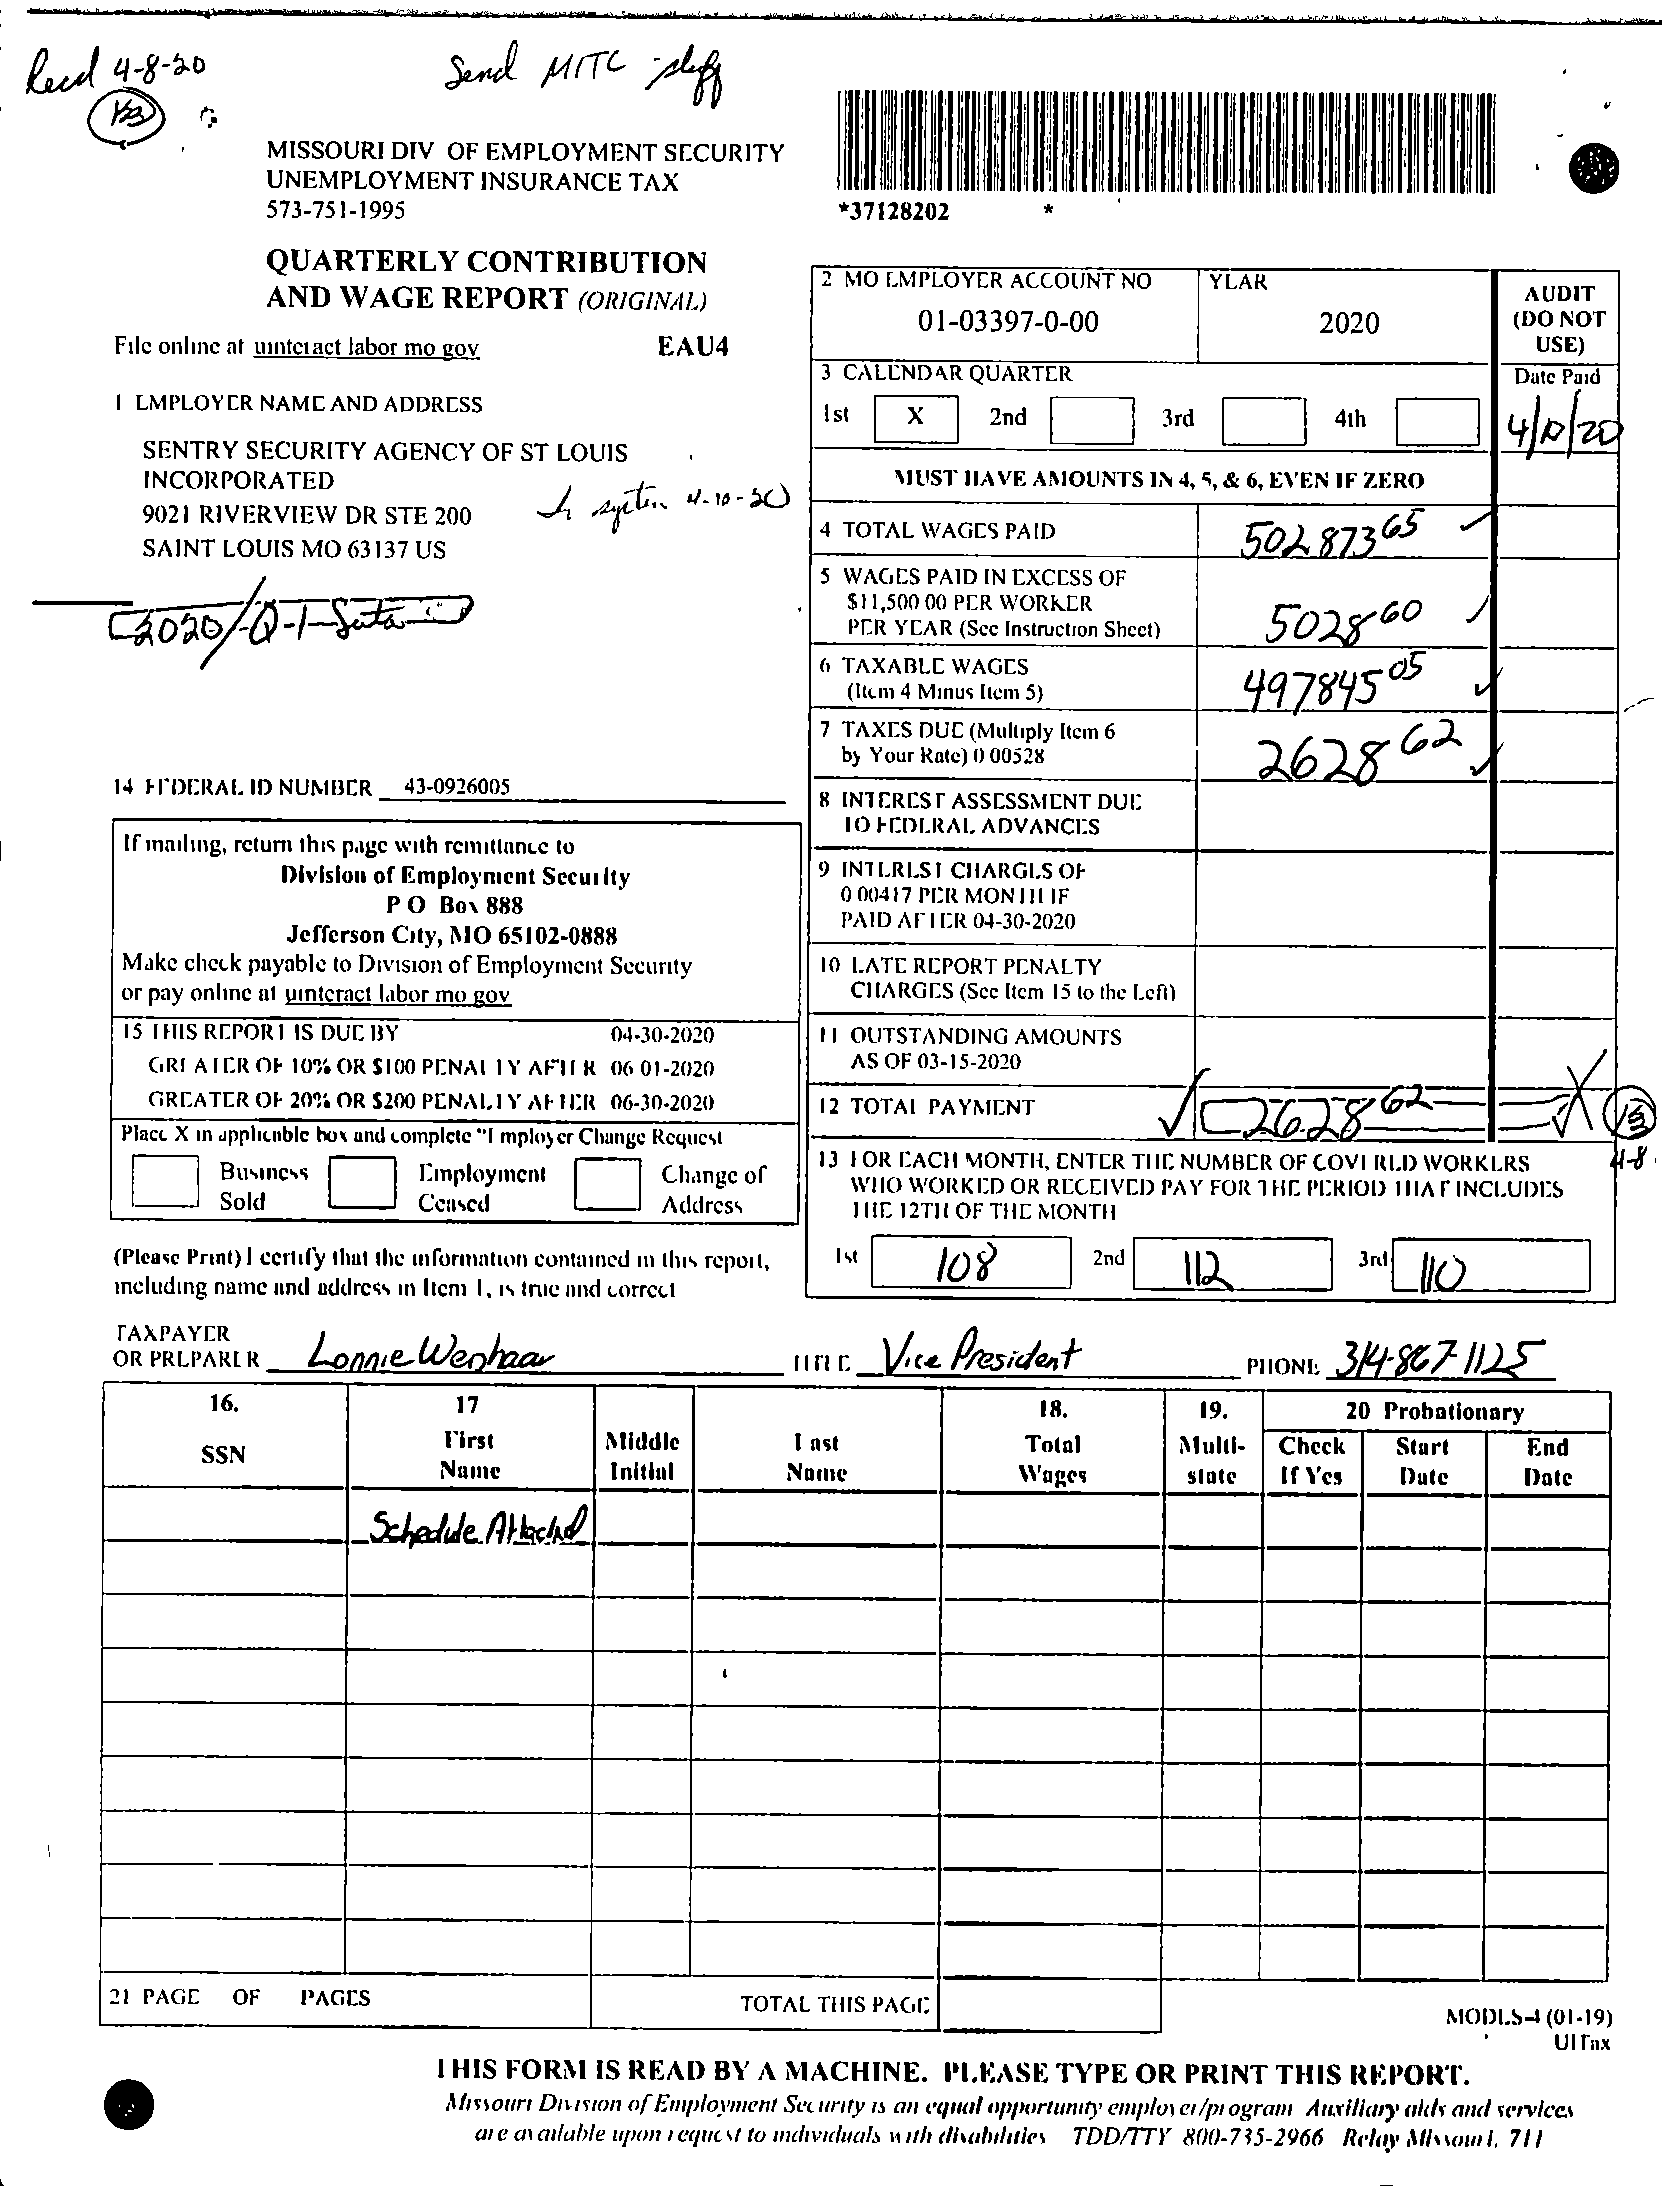 Recd 4-8-20
Send MITC stuff
MISSOURI DIV OF EMPLOYMENT SECURITY
UNEMPLOYMENT INSURANCE TAX
573-751-1995
*37128202 *
QUARTERLY CONTRIBUTION
AND WAGE REPORT (ORIGINAL)
File online at uinteract labor mo gov EAU4
1 EMPLOYER NAME AND ADDRESS
SENTRY SECURITY AGENCY OF ST LOUIS
INCORPORATED
9021 RIVERVIEW DR STE 200
SAINT LOUIS MO 63137 US
In system 4-10-20
2020/Q-1-Suta
14 FEDERAL ID NUMBER 43-0926005
If mailing, return this page with remittance to
Division of Employment Security
P O Box 888
Jefferson City, MO 65102-0888
Make check payable to Division of Employment Security
or pay online at uinteract labor mo gov
15 THIS REPORT IS DUE BY 04-30-2020
GREATER OF 10% OR $100 PENALTY AFTER 06 01-2020
GREATER OF 20% OR $200 PENALTY AFTER 06-30-2020
Place X in applicable box and complete "Employer Change Request
Business Sold
Employment Ceased
Change of Address
(Please Print) I certify that the information contained in this report,
including name and address in Item 1, is true and correct
2 MO EMPLOYER ACCOUNT NO
01-03397-0-00
YEAR
2020
AUDIT
(DO NOT
USE)
3 CALENDAR QUARTER
1st X 2nd 3rd 4th
Date Paid
4/10/20
MUST HAVE AMOUNTS IN 4, 5, & 6, EVEN IF ZERO
4 TOTAL WAGES PAID 502873 65
5 WAGES PAID IN EXCESS OF
$11,500 00 PER WORKER
PER YEAR (See Instruction Sheet) 5028 60
6 TAXABLE WAGES
(Item 4 Minus Item 5) 497845 05
7 TAXES DUE (Multiply Item 6
by Your Rate) 0 00528 2628 62
8 INTEREST ASSESSMENT DUE
TO FEDERAL ADVANCES
9 INTEREST CHARGES OF
0 00417 PER MONTH IF
PAID AFTER 04-30-2020
10 LATE REPORT PENALTY
CHARGES (See Item 15 to the Left)
11 OUTSTANDING AMOUNTS
AS OF 03-15-2020
12 TOTAL PAYMENT 2628 62
4-8
13 FOR EACH MONTH, ENTER THE NUMBER OF COVERED WORKERS
WHO WORKED OR RECEIVED PAY FOR THE PERIOD THAT INCLUDES
THE 12TH OF THE MONTH
1st 108 2nd 112 3rd 110
TAXPAYER
OR PREPARER Lonnie Wenhaar TITLE Vice President PHONE 314-867-1125
16. SSN
17 First Name
Middle Initial
Last Name
18. Total Wages
19. Multi-state
20 Probationary
Check If Yes
Start Date
End Date
Schedule Attached
21 PAGE OF PAGES TOTAL THIS PAGE
MODES-4 (01-19)
UITax
THIS FORM IS READ BY A MACHINE. PLEASE TYPE OR PRINT THIS REPORT.
Missouri Division of Employment Security is an equal opportunity employer/program Auxiliary aids and services
are available upon request to individuals with disabilities TDD/TTY 800-735-2966 Relay Missouri, 711